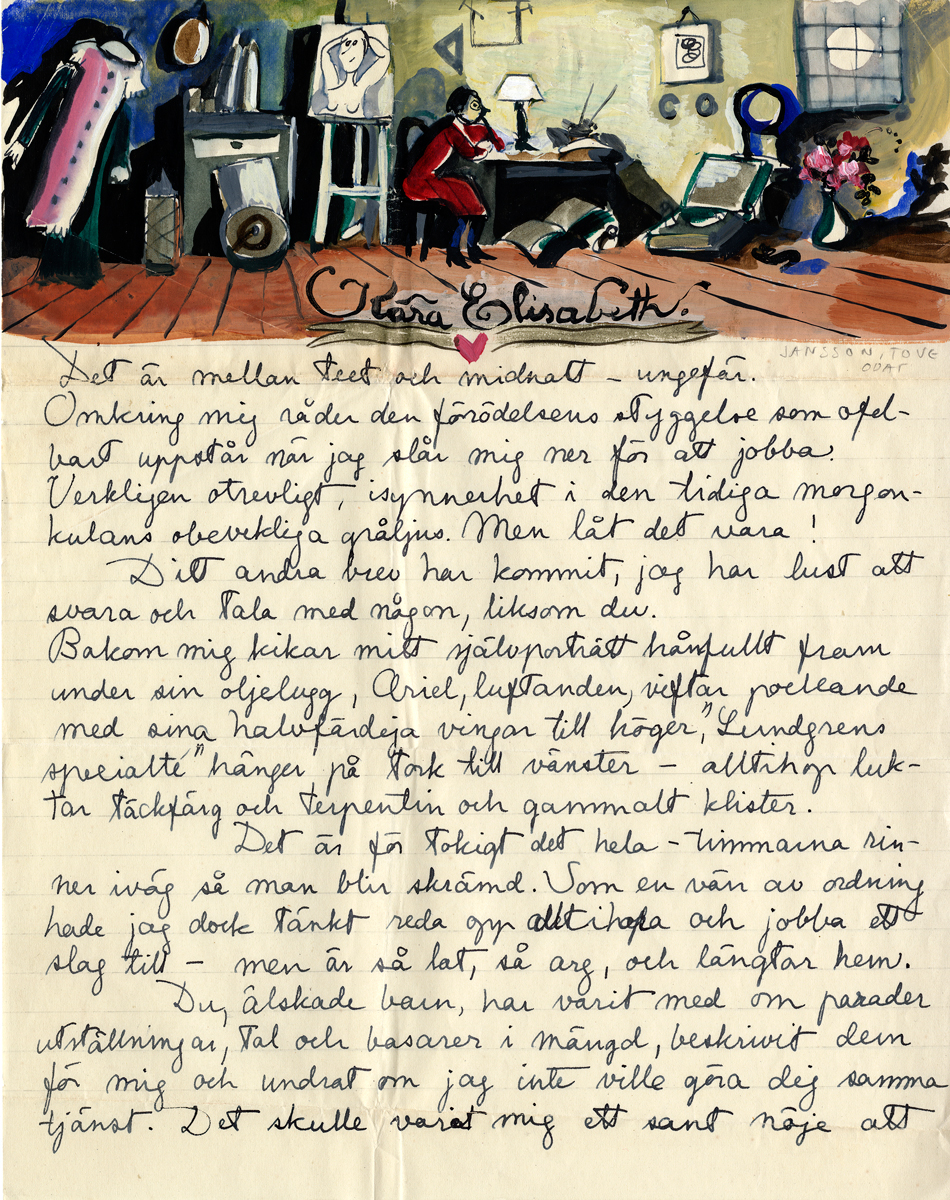 Kära Elisabeth!
JANSSON, TOVE
ODAT
Det är mellan teet och midnatt – ungefär.
Omkring mig råder den förödelsens styggelse som ofel-
bart uppstår när jag slår mig ner för att jobba.
Verkligen otrevligt, isynnerhet i den tidiga morgon-
kulans obevekliga gråljus. Men låt det vara!
Ditt andra brev har kommit, jag har lust att
svara och tala med någon, liksom du.
Bakom mig kikar mitt självporträtt hånfullt fram
under sin oljelugg, Ariel, luftanden, viftar pockande
med sina halvfärdiga vingar till höger, "Lundgrens
specialté" hänger på tork till vänster – alltihop luk-
tar täckfärg och terpentin och gammalt klister.
Det är för tokigt det hela – timmarna rin-
ner iväg så man blir skrämd. Som en vän av ordning
hade jag dock tänkt reda opp alltihopa och jobba ett
slag till – men är så lat, så arg, och längtar hem.
Du, älskade barn, har varit med om parader
utställningar, tal och basarer i mängd, beskrivit dem
för mig och undrat om jag inte ville göra dig samma
tjänst. Det skulle varit mig ett sant nöje att